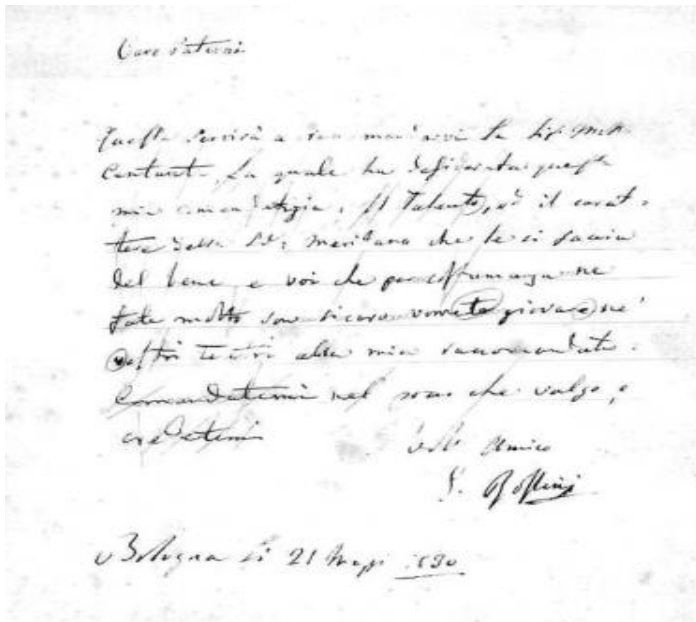 Caro Paterni
Questa servirà a
Cantante, la quale ha desiderata questa
mia Il Talento, ed il carat-
tere della Sd: meritano che le si faccia
del bene, e voi che per costumanza ne
fate molto son sicuro vorrete giovare ne'
vostri Teatri alla mia raccomandata.
Comandatemi nel poco che valgo, e
credetemi
Amico
Rossini
Bologna li 21 Magg. 1830